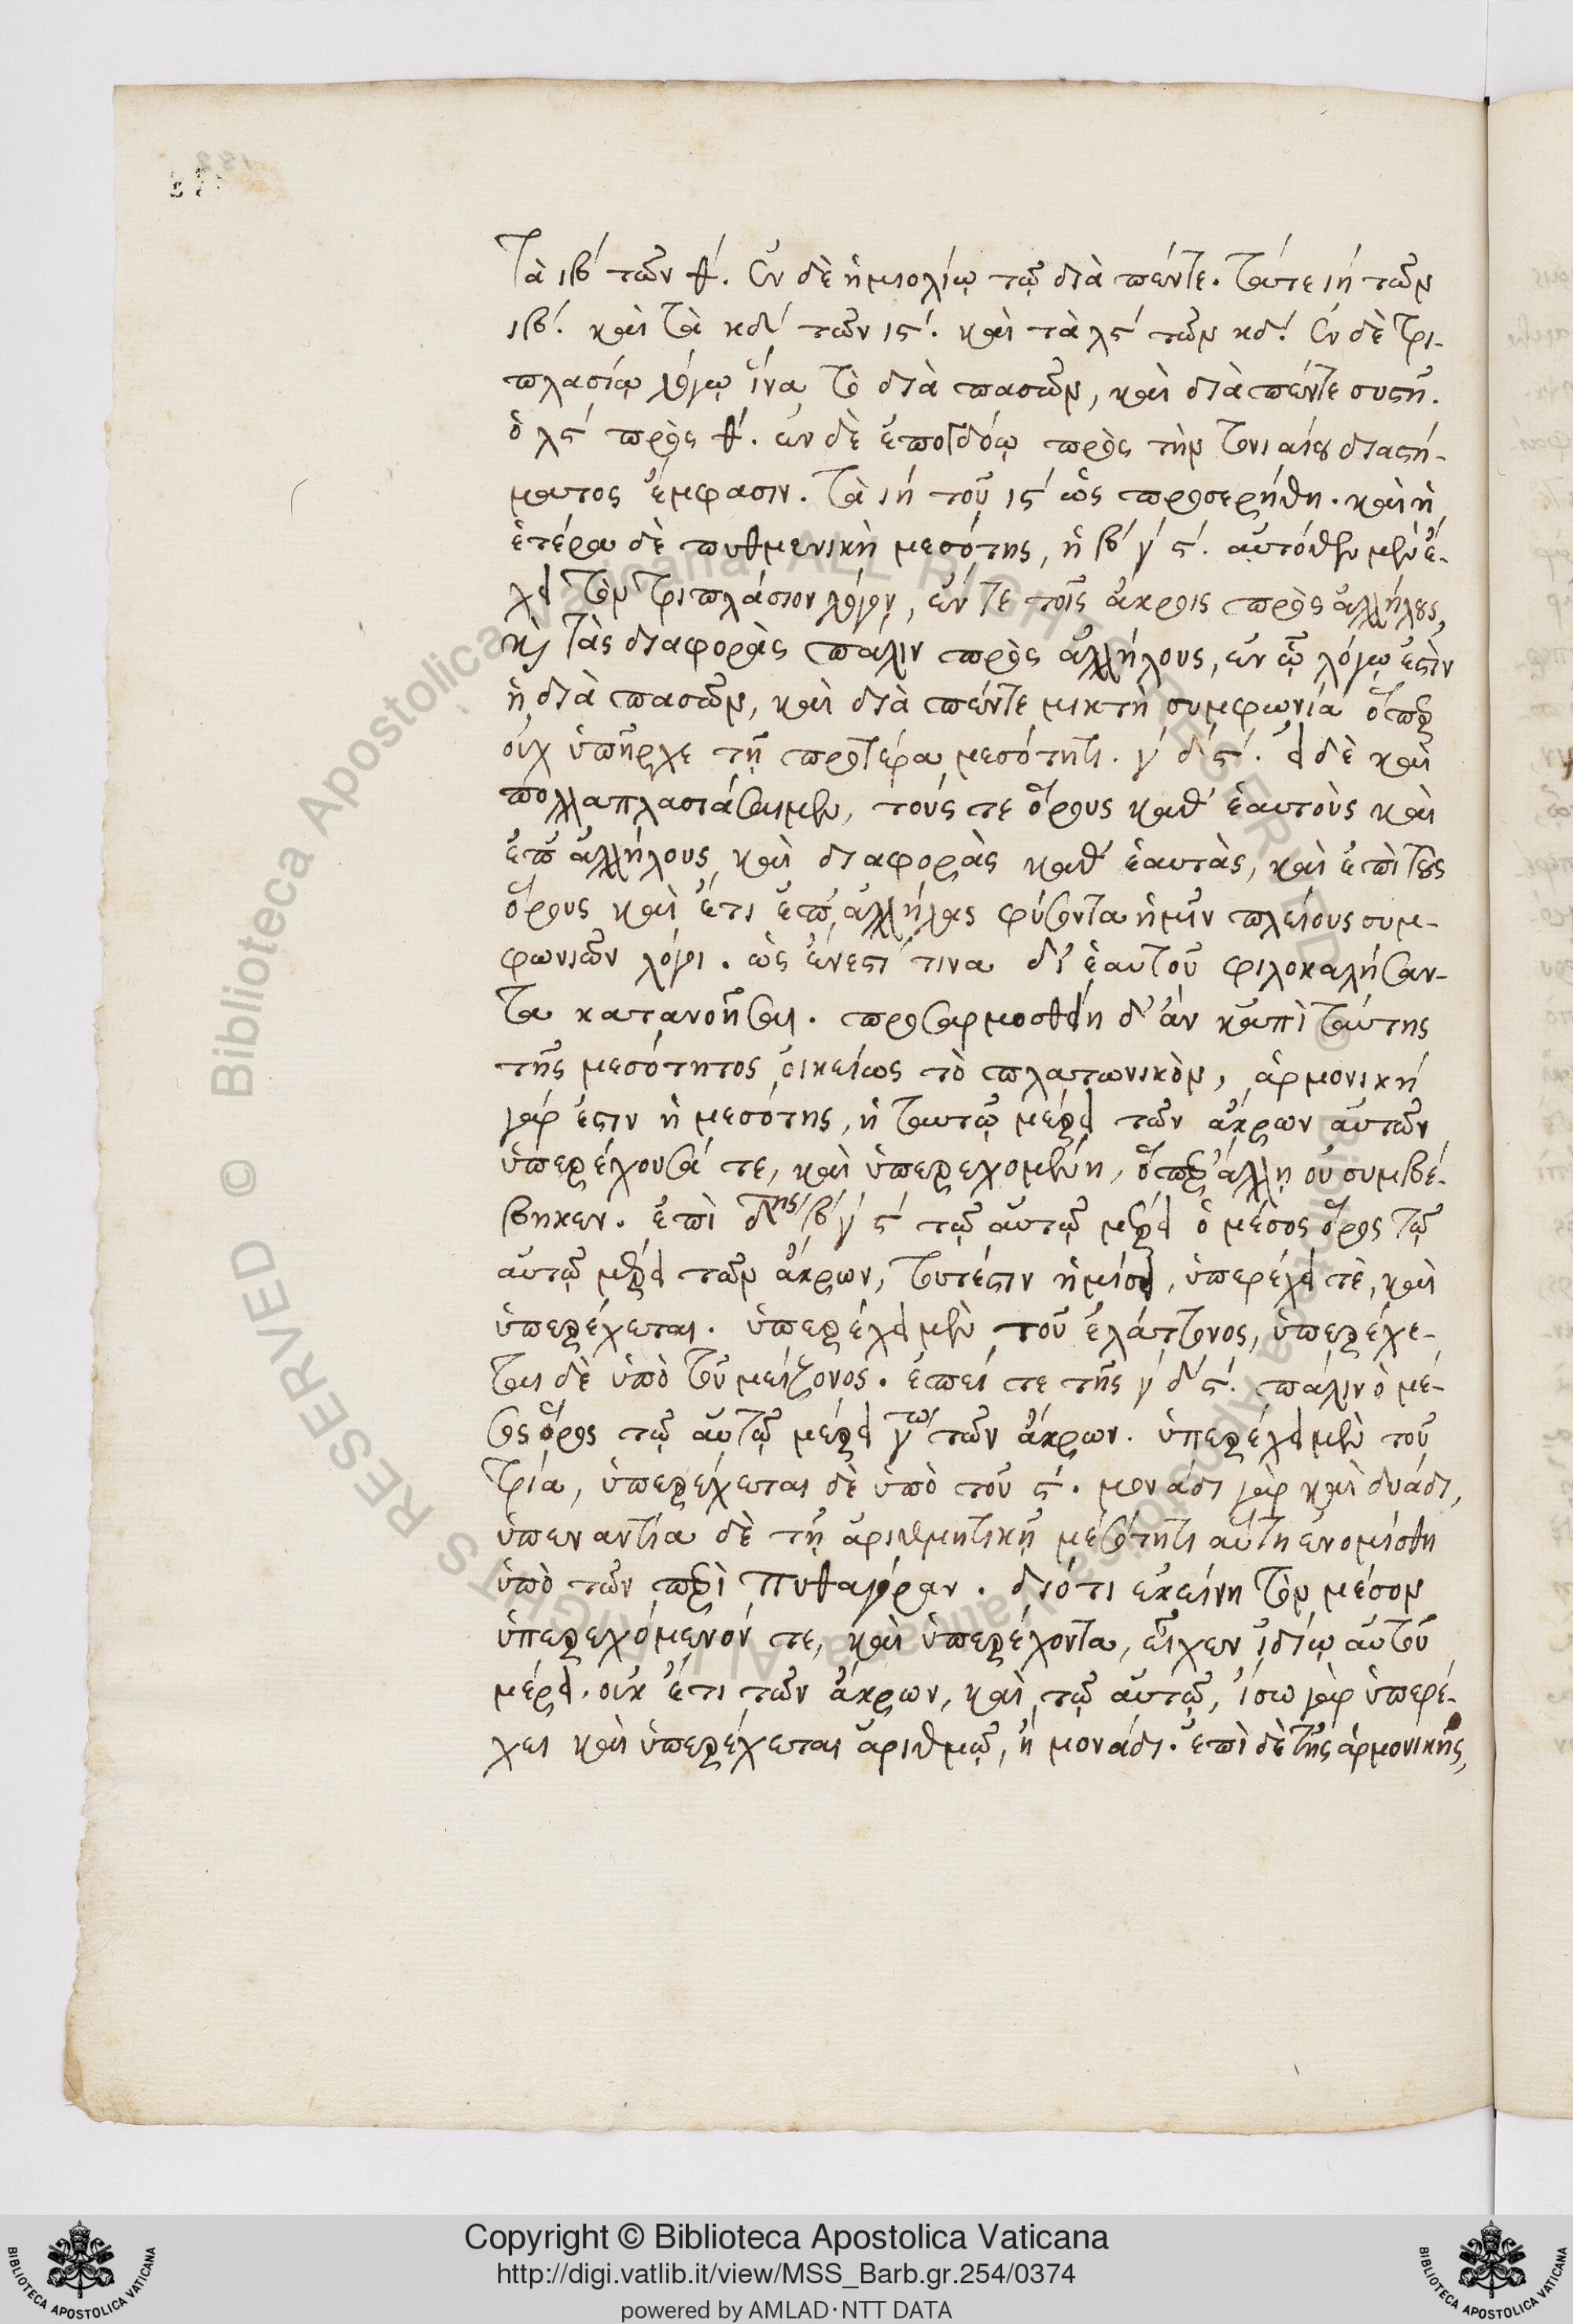 τὰ ιβ´ τῶν θ´. ἐν δὲ ἡμιολίῳ τῷ διὰ πέντε. τάτε ιή τῶν
ιβ´. καὶ τὰ κδ´ τῶν ις´. καὶ τὰ λς´ τῶν κδ´. ἐν δὲ τρι-
πλασίῳ λόγῳ ἵνα τὸ διὰ πασῶν, καὶ διὰ πέντε συστῇ.
ὁ λς´ πρὸς θ´. ἐν δὲ ἐποгδόῳ πρὸς τὴν τονιαίου διαστή-
ματος ἔμφασιν. τὰ ιή τοῦ ις´ ὡς προσερήθη. καὶ ἡ
ἑτέρα δὲ πυθμενικὴ μεσότης, ἡ β´ γ´ ς´. αὐτόθεν μὲν ἔ-
χει τὸν τριπλάσιον λόγον, ἔν τε τοῖς ἄκροις πρὸς ἀλλήλους,
κὶ τὰς διαφορὰς πάλιν πρὸς ἀλλήλους, ἐν ᾧ λόγῳ ἐστὶν
ἡ διὰ πασῶν, καὶ διὰ πέντε μικτὴ συμφωνία ὅπερ
οὐχ ὑπῆρχε τῇ προτέρα μεσότητι. γ´ δ´ ς´. εἰ δὲ καὶ
πολλαπλασιάσαιμεν, τούς τε ὅρους καθ' ἑαυτοὺς καὶ
ἐπ' ἀλλήλους καὶ διαφορὰς καθ' ἑαυτὰς, καὶ ἐπὶ τοὺς
ὅρους καὶ ἔτι ἐπ' ἀλλήλας φύσονται ἡμῖν πλείους συμ-
φωνιῶν λόγοι. ὡς ἔνεστί τινα δι' ἑαυτοῦ φιλοκαλήσαν-
τα κατανοῆσαι. προσαρμοσθείη δ' ἂν κἀπὶ ταύτης
τῆς μεσότητος οἰκείως τὸ πλατωνικὸν, ἁρμονική
γάρ ἐστιν ἡ μεσότης, ἡ ταυτῷ μέρει τῶν ἄκρων αὐτῶν
ὑπερέχουσά τε, καὶ ὑπερεχομένη, ὅπερ ἄλλῃ οὐ συμβέ-
βηκεν. ἐπὶ β´ γ´ ς´ τῷ αὐτῷ μέρει ὁ μέσος ὅρος τῷ
αὐτῷ μέρει τῶν ἄκρων, τουτέστιν ἡμίσει, ὑπερέχει τὲ, καὶ
ὑπερέχεται. ὑπερέχει μὲν τοῦ ἐλάττονος, ὑπερέχε-
ται δὲ ὑπὸ τοῦ μείζονος. ἐπεί τε τῆς γ´ δ´ ς´. πάλιν ὁ μέ-
σος ὅρος τῷ αὐτῷ μέρει γ´τῳ τῶν ἄκρων. ὑπερέχει μὲν τοῦ
τρία, ὑπερέχεται δὲ ὑπὸ τοῦ ς´. μονάδι γὰρ καὶ δυάδι,
ὑπεναντία δὲ τῇ ἀριθμητικῇ μεσότητι αὕτη ἐνομίσθη
ὑπὸ τῶν περὶ πυθαγόραν. διότι ἐκείνη τὸν μέσον
ὑπερεχόμενόν τε, καὶ ὑπερέχοντα, εἶχεν ἰδίῳ αὐτοῦ
μέρει. οὐκ ἔτι τῶν ἄκρων, καὶ τῷ αὐτῷ, ἴσῳ γὰρ ὑπερέ-
χει καὶ ὑπερέχεται ἀριθμῷ, ἢ μονάδι. ἐπὶ δὲ τῆς ἁρμονικῆς,
Copyright © Biblioteca Apostolica Vaticana
http://digi.vatlib.it/view/MSS_Barb.gr.254/0374
powered by AMLAD·NTT DATA